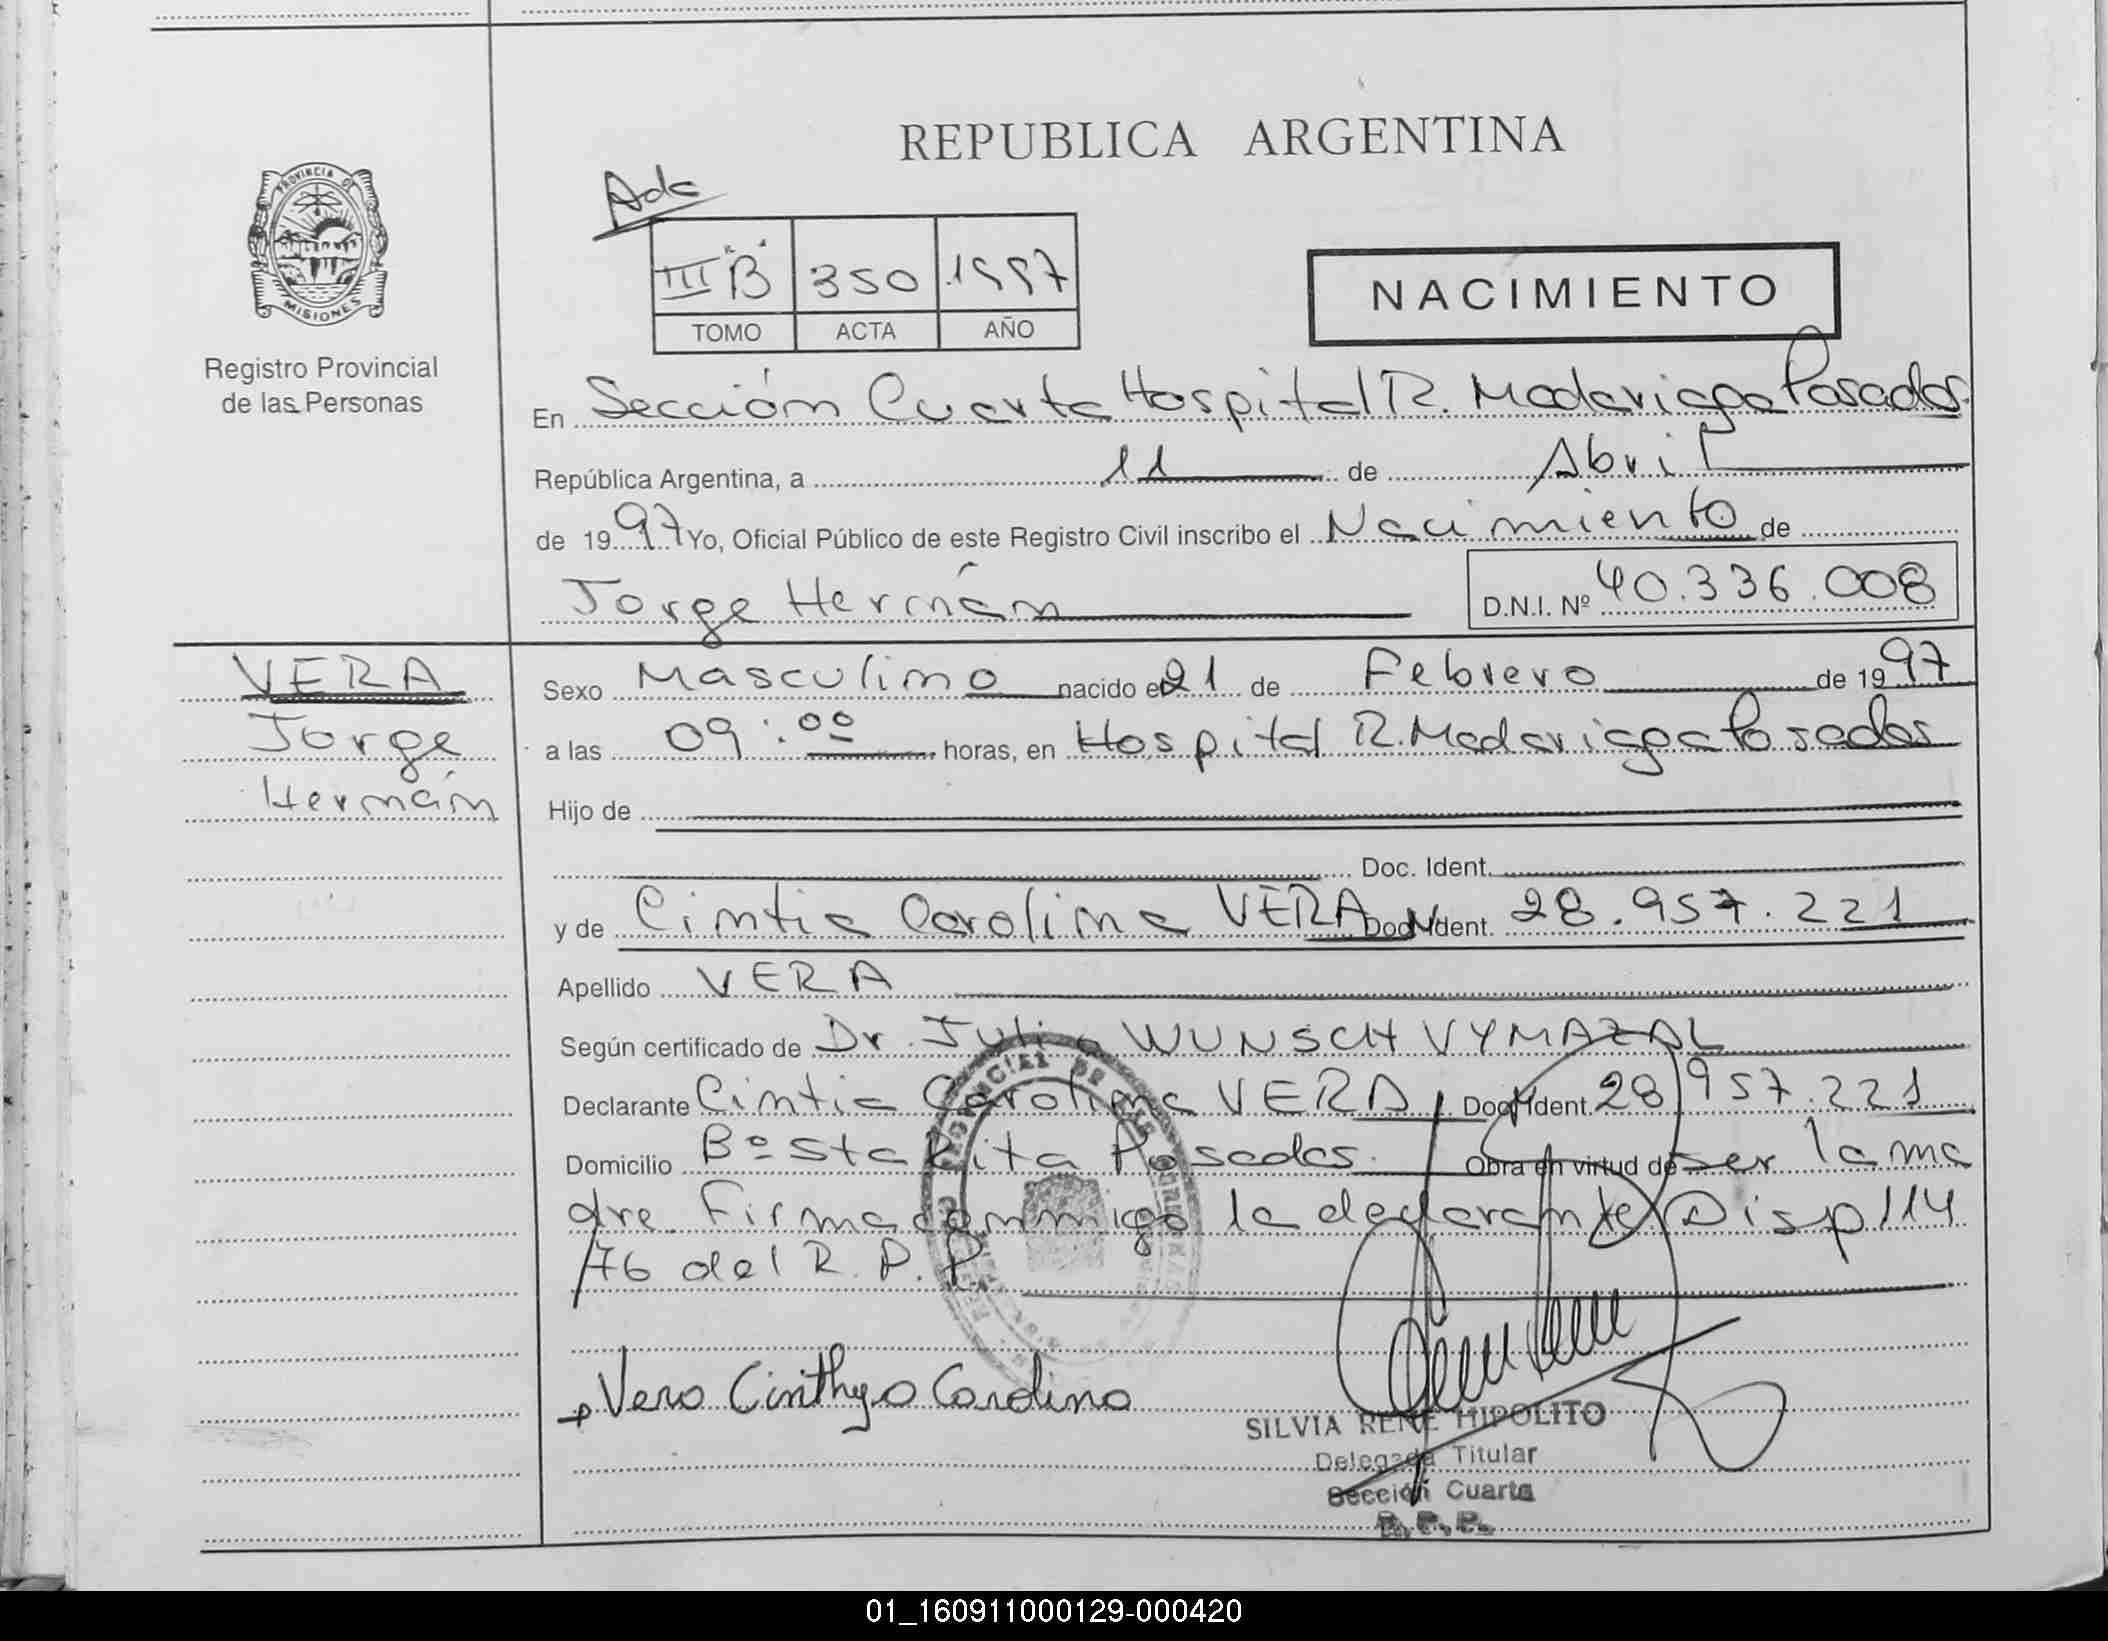 REPUBLICA ARGENTINA
PROVINCIA DE
MISIONES
Registro Provincial
de las Personas
Adc
III "B" 350 1997
TOMO ACTA AÑO
NACIMIENTO
En Sección Cuarta Hospital R. Madariaga Posadas.
República Argentina, a 11 de Abril
de 1997 Yo, Oficial Público de este Registro Civil inscribo el Nacimiento de
Jorge Hernán D.N.I. Nº 40.336.008
VERA
Jorge
Hernán
Sexo Masculino nacido el 21 de Febrero de 1997
a las 09:00 horas, en Hospital R. Madariaga Posadas
Hijo de
Doc. Ident.
y de Cintia Carolina VERA Doc. Ident. 28.957.221
Apellido VERA
Según certificado de Dr. Julio WUNSCH VYMAZAL
Declarante Cintia Carolina VERA Doc. Ident. 28.957.221
Domicilio Bº Sta Rita Posadas. Obra en virtud de ser la ma
dre. Firma conmigo la declarante Disp 114
/76 del R.P.P.
Vera Cinthya Carolina
SILVIA RENE HIPOLITO
Delegada Titular
Sección Cuarta
R.P.P.
01_160911000129-000420